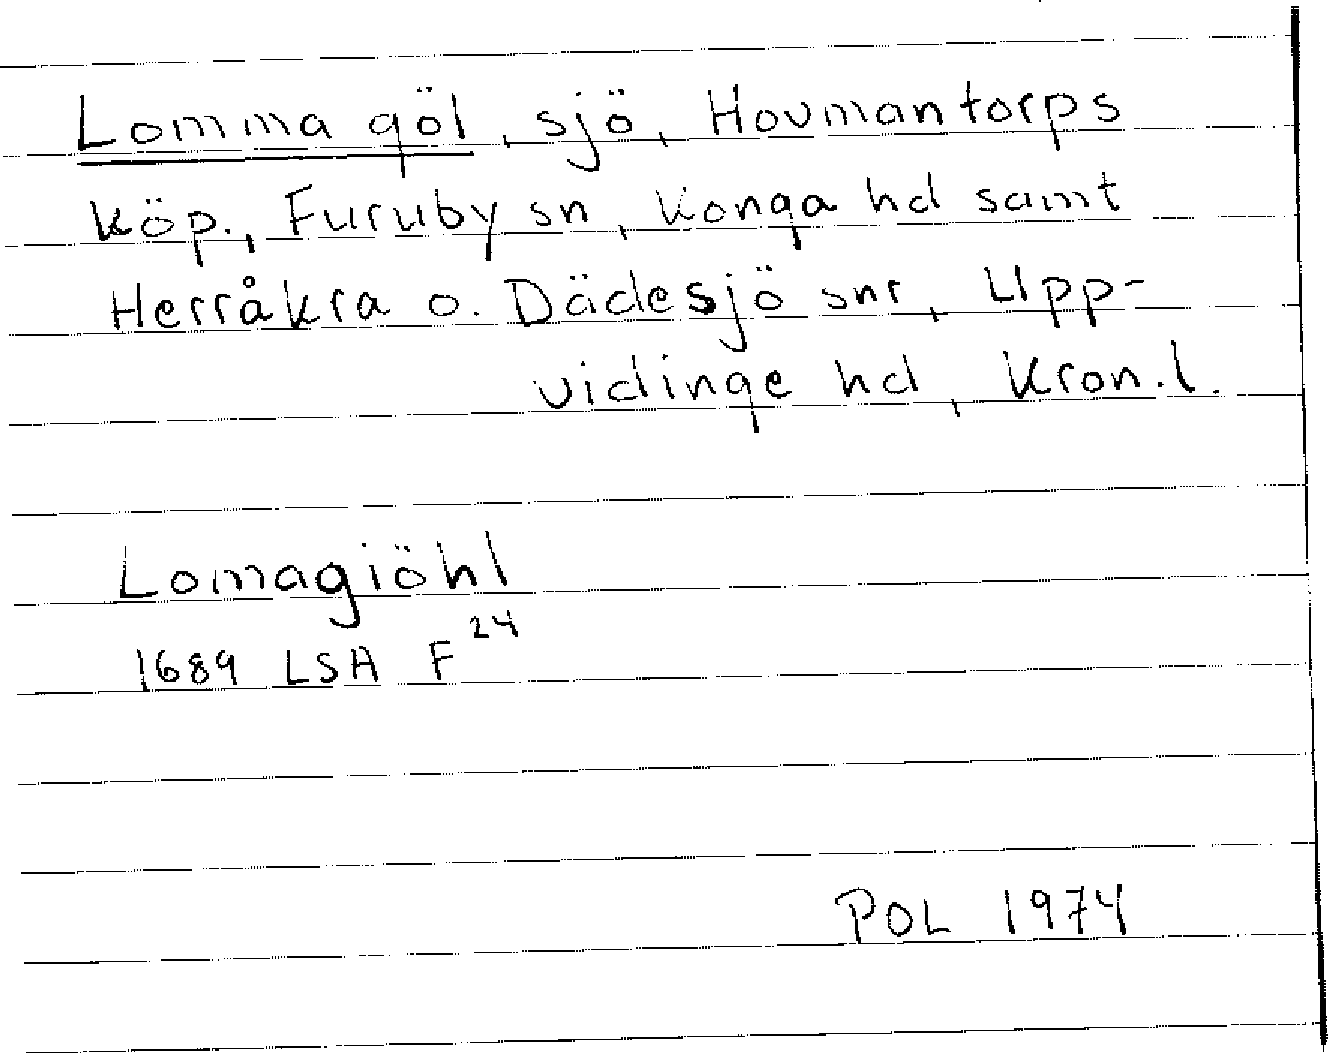 Lomma göl, sjö, Hovmantorps
köp., Furuby sn, Konga hd samt
Herråkra o. Dädesjö snr, Upp-
vidinge hd, Kron.l.
Lomagiöhl
1689 LSA F 24
POL 1974